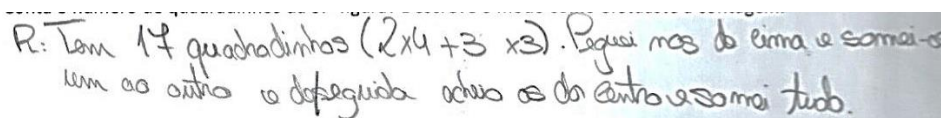 R: Tem 17 quadradinhos (2x4 + 3 x3). Peguei nos de cima e somei-o
um ao outro e de seguida os do centro e somei tudo.